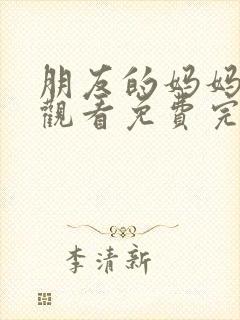 朋友的妈妈
觀看免費完
李清新